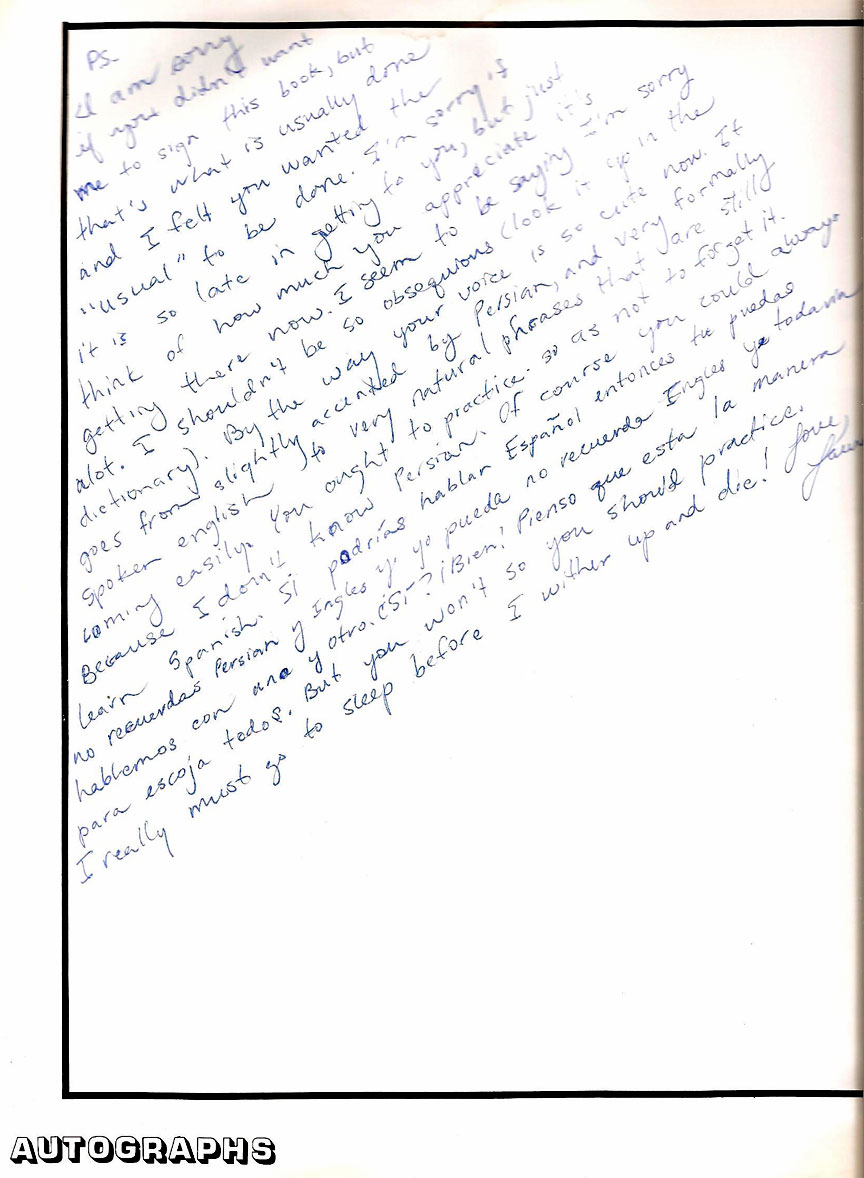 PS-
I am sorry
if you didn't want
me to sign this book, but
that's what is usually done
and I felt you wanted the
"usual" to be done. I'm sorry if
it is so late in getting to you, but just
think of how much you appreciate it's
getting there now. I seem to be saying I'm sorry
alot. I shouldn't be so obsequious (look it up in the
dictionary). By the way your voice is so cute now. It
goes from slightly accented by Persian, and very formally
spoken english to very natural phrases that are still
coming easily. You ought to practice. so as not to forget it.
Because I don't know Persian. Of course you could always
learn Spanish. Si podrías hablar Español entonces tu puedas
no recuerdas Persian y Ingles y yo pueda no recuerda Ingles yo todavia
hablemos con una y otro. ¿Si? ¡Bien! Pienso que esta la manera
para escoja todos. But you won't so you should practice.
I really must go to sleep before I wither up and die! Love,
AUTOGRAPHS